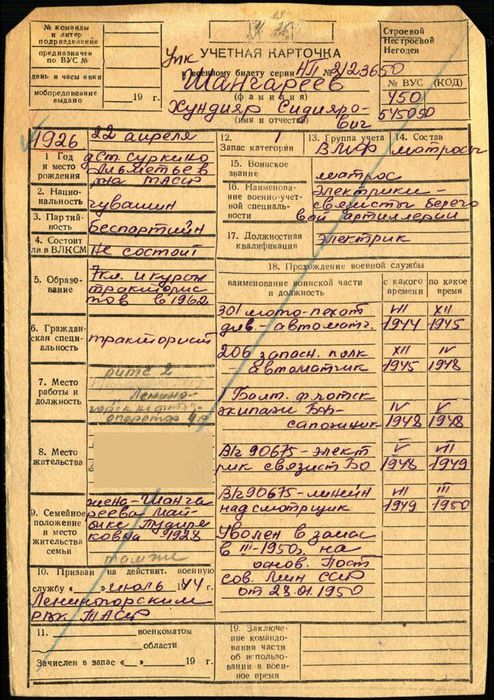 № команды
и литер
подразделения
предназначен
по ВУС №
день и часы явки
мобпредписание
выдано
19 г.
УЧЕТНАЯ КАРТОЧКА
к военному билету серии НП № 2123650
Шангареев
(фамилия)
Хундияр Сидияро-
вич
(имя и отчество)
Строевой
Нестроевой
Негоден
№ ВУС (КОД)
450
1926 22 апреля
1 Год
и место
рождения
д. ст. Суркино
Альметьев
р-на ТАССР
2. Нацио-
нальность
чувашин
3. Партий-
ность
Беспартийн
4. Состоит
ли в ВЛКСМ
Не состоит
5. Образо-
вание
7кл. и курсы
трактористов
в 1962
6. Граждан-
ская специ-
альность
тракторист
7. Место
работы и
должность
Ленино-
оператор
8. Место
жительства
9. Семейное
положение
и место
жительства
семьи
жена - Шанга
реева Май-
1928
там же
10. Призван на действит. военную
службу «__» июль 1944 г.
Лениногорским
РВК ТАССР
11. военкоматом
области
Зачислен в запас «__» 19 г.
12. 1
Запас категории
13. Группа учета
ВМФ
14. Состав
матросы
15. Воинское
звание
матрос
16. Наименова-
ние военно-учет-
ной специаль-
ности
Электрики -
связисты берего
вой артиллерии
17. Должностная
квалификация
Электрик
18. Прохождение военной службы
наименование воинской части
и должность
с какого
времени
по какое
время
301 мото-пехот
див. - автоматч.
VII
1944
XII
1945
206 запасн. полк
- автоматчик
XII
1945
IV
1948
1 Балт. флотск
экипаж Бал-
сапожник
IV
1948
V
1948
В/ч 90675 - элект
рик связист БО
V
1948
VII
1949
В/ч 90675 - линейн
надсмотрщик
VII
1949
III
1950
Уволен в запас
в III-1950г. на
основ. Пост
сов. Мин СССР
от 28.01.1950
19. Заключение
командования
части
об использо-
вании в воен-
ное время